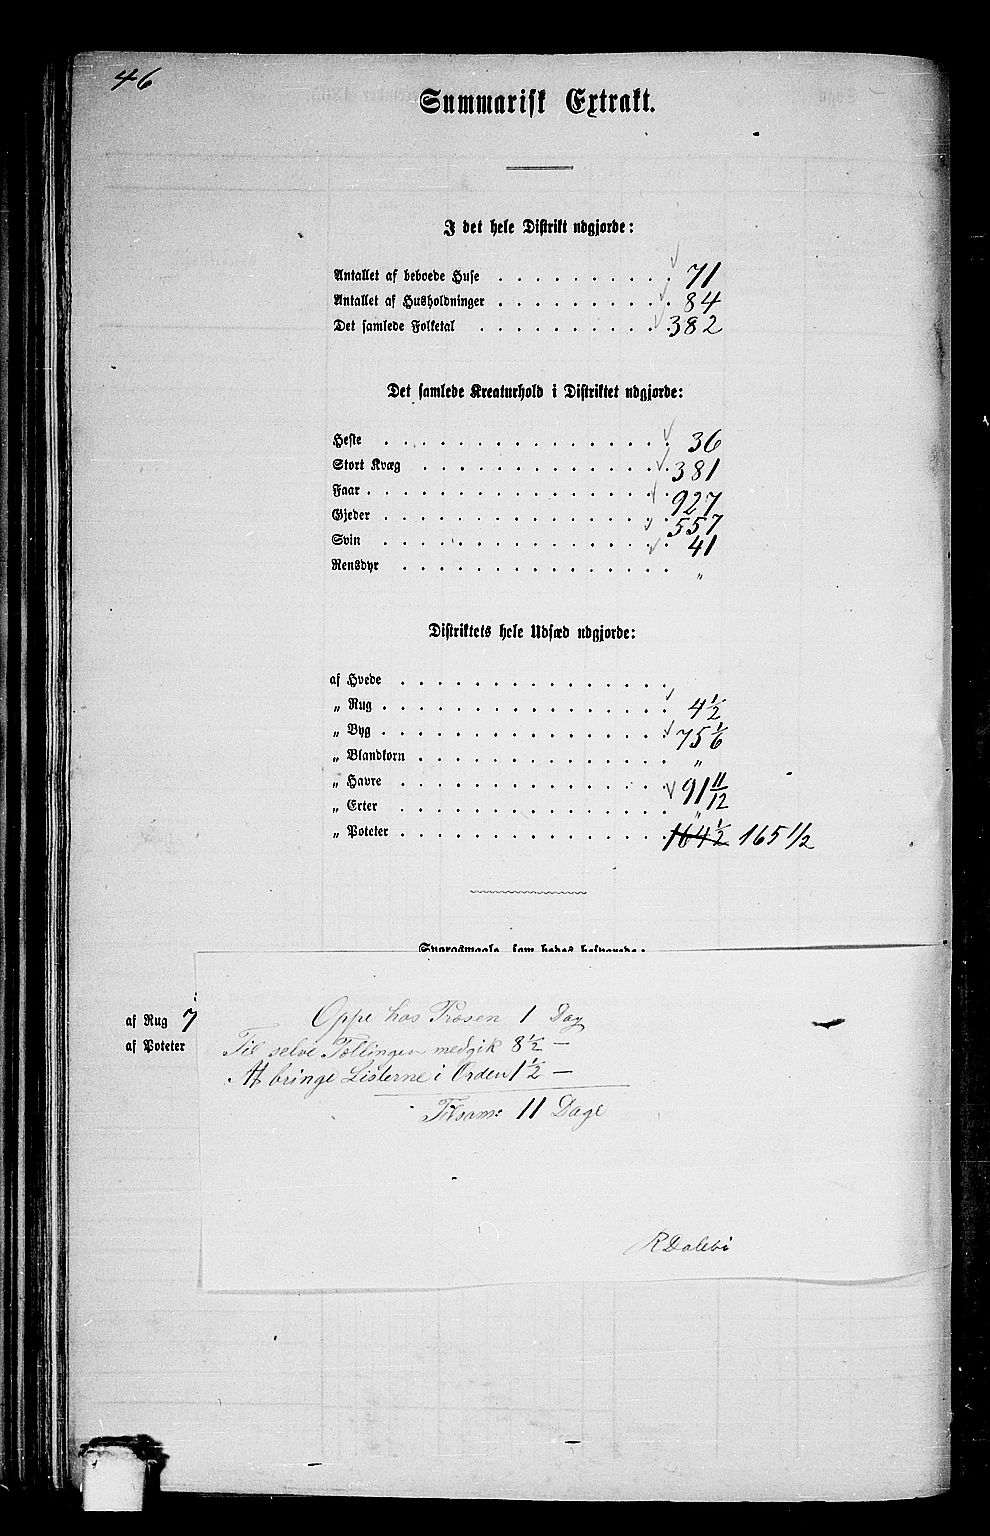 46
Summarisk Extrakt.
I det hele Distrikt udgjorde:
Antallet af beboede Huse . . . . . . . . . . 71
Antallet af Husholdninger . . . . . . . . . . 84
Det samlede Folketal . . . . . . . . . . . 382
Det samlede Kreaturhold i Distriktet udgjorde:
Heste . . . . . . . . . . . . . . . . 36
Stort Kvæg . . . . . . . . . . . . . . 381
Faar . . . . . . . . . . . . . . . . . 927
Gjeder . . . . . . . . . . . . . . . . 557
Svin . . . . . . . . . . . . . . . . 41
Rensdyr . . . . . . . . . . . . . . . „
Distriktets hele Udsæd udgjorde:
af Hvede . . . . . . . . . . . . . . .
„ Rug . . . . . . . . . . . . . . . . 4 1/2
„ Byg . . . . . . . . . . . . . . . . 75 1/6
„ Blandkorn . . . . . . . . . . . . . . „
„ Havre . . . . . . . . . . . . . . . 91 11/12
„ Erter . . . . . . . . . . . . . . . „
„ Poteter . . . . . . . . . . . . . . . 164 1/2 165 1/2
Spørgsmaale, som bedes besvarede:
af Rug 7
af Poteter
Oppe hos Prosen 1 Dag
Til selve Tællingen medgik 8 1/2 —
At bringe Listerne i Orden 1 1/2 —
Tilsam: 11 Dage
R Dalebø